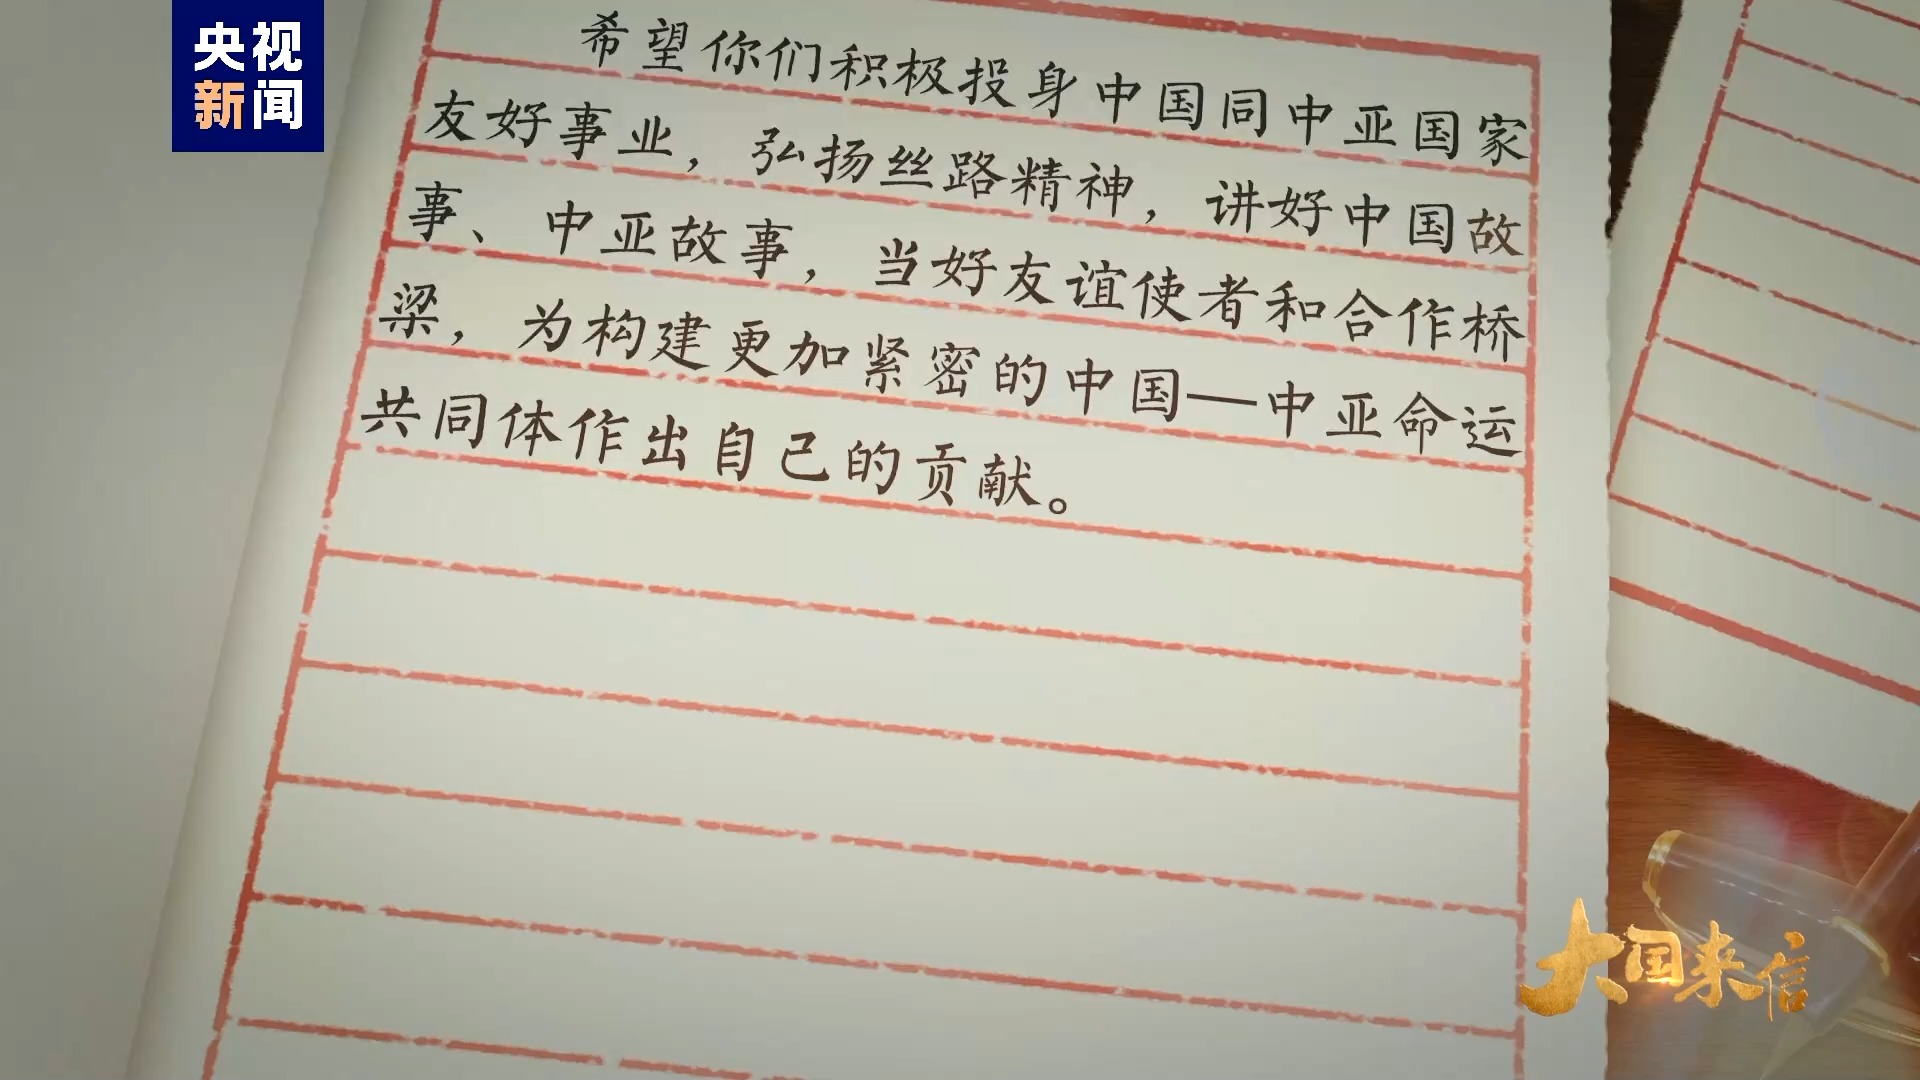 央视
新闻
希望你们积极投身中国同中亚国家
友好事业，弘扬丝路精神，讲好中国故
事、中亚故事，当好友谊使者和合作桥
梁，为构建更加紧密的中国—中亚命运
共同体作出自己的贡献。
大国来信